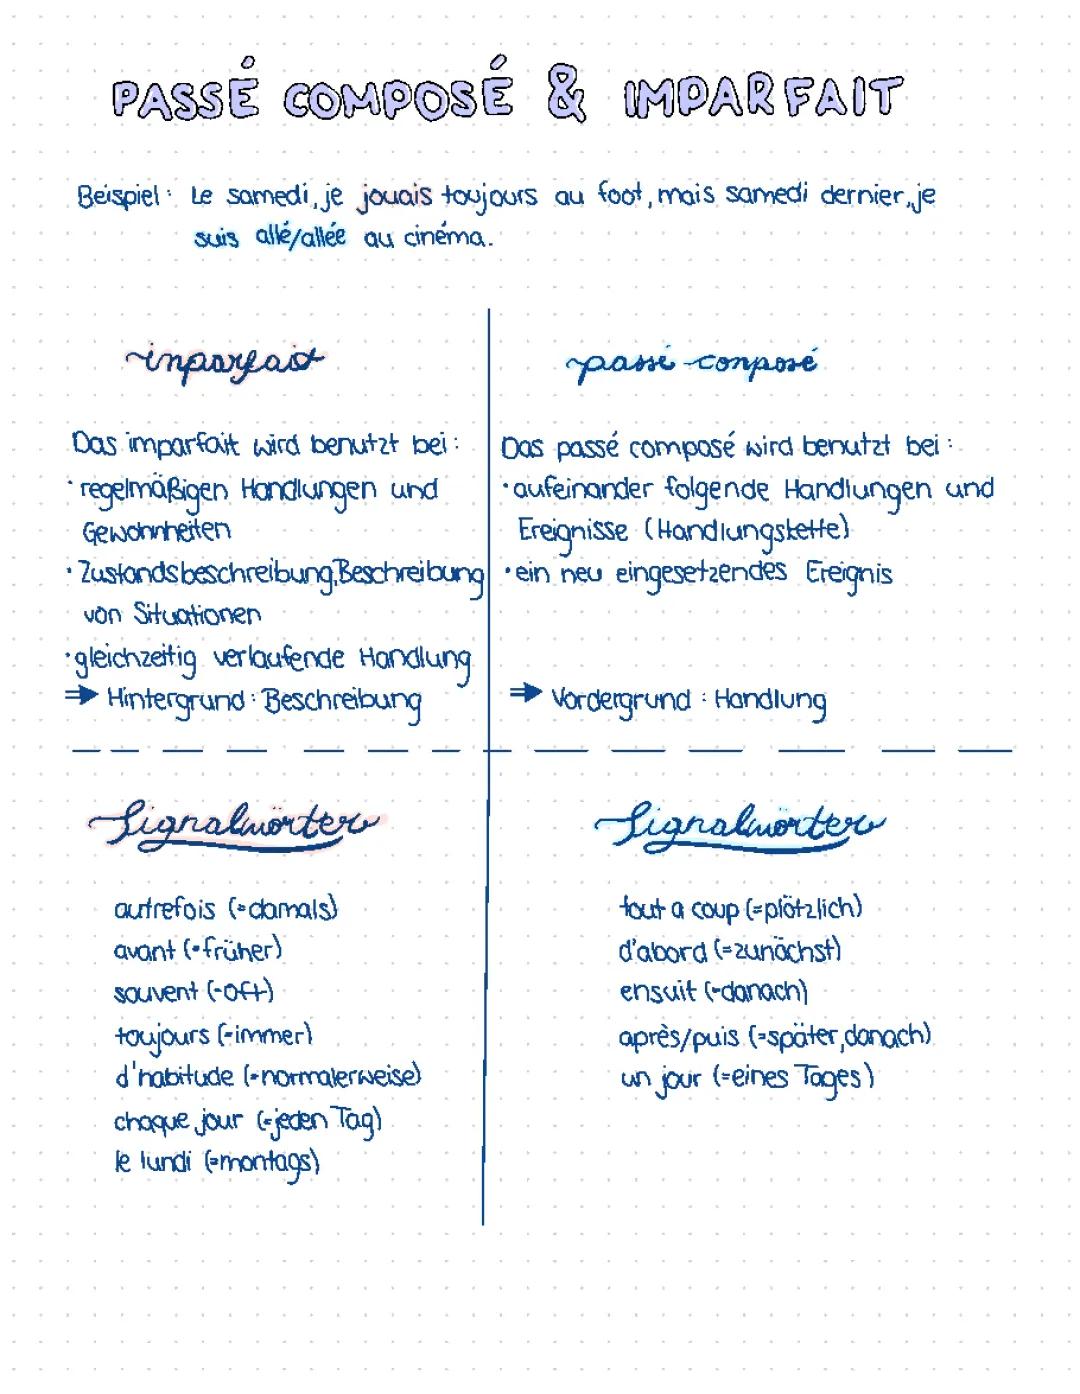 PASSÉ COMPOSÉ & IMPARFAIT
Beispiel: Le samedi, je jouais toujours au foot, mais samedi dernier, je
suis allé/allée au cinéma.
imparfait
Das imparfait wird benutzt bei:
· regelmäßigen Handlungen und
Gewohnheiten
· Zustandsbeschreibung, Beschreibung
von Situationen
· gleichzeitig verlaufende Handlung
⇒ Hintergrund: Beschreibung
passé composé
Das passé composé wird benutzt bei:
· aufeinander folgende Handlungen und
Ereignisse (Handlungskette)
· ein neu eingesetzendes Ereignis
⇒ Vordergrund: Handlung
Signalwörter
autrefois (=damals)
avant (=früher)
souvent (=oft)
toujours (=immer)
d'habitude (=normalerweise)
chaque jour (=jeden Tag)
le lundi (=montags)
Signalwörter
tout a coup (=plötzlich)
d'abord (=zunächst)
ensuit (=danach)
après/puis (=später, danach)
un jour (=eines Tages)